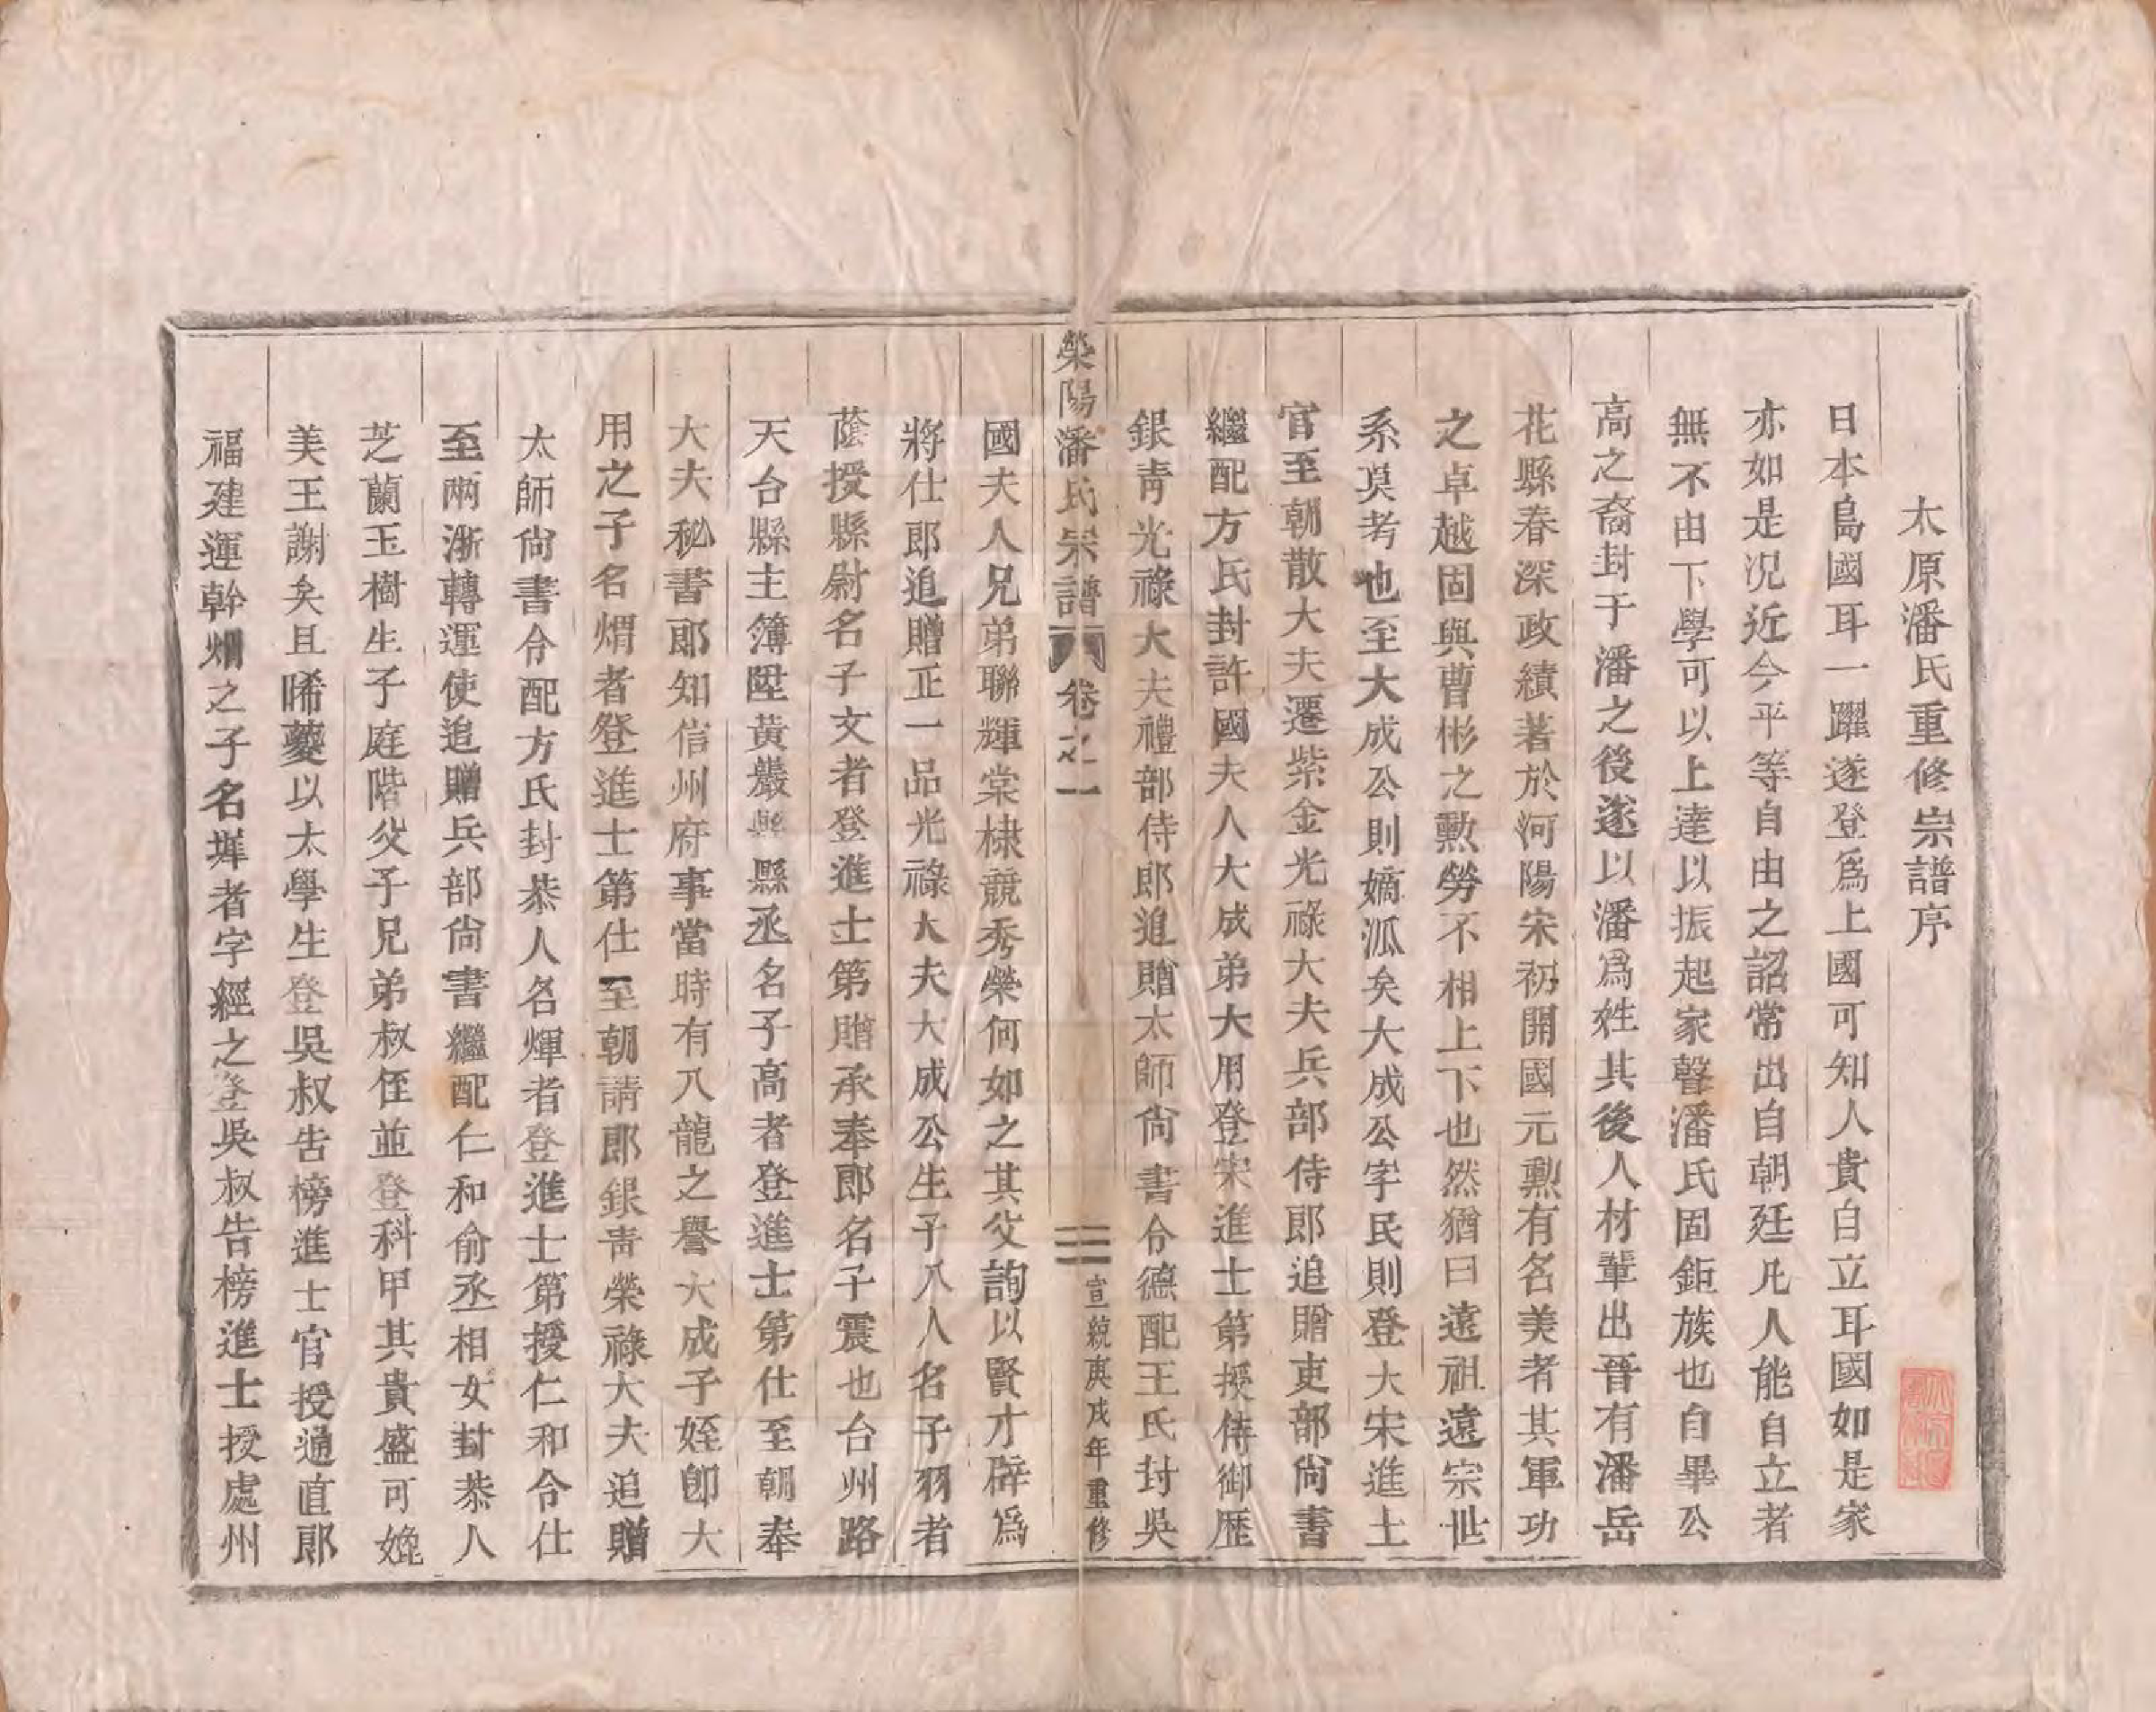 太原潘氏重修宗譜序
日本島國耳一躍遂登爲上國可知人貴自立耳國如是家
亦如是況近今平等自由之詔常出自朝廷凡人能自立者
無不由下學可以上達以振起家聲潘氏固鉅族也自畢公
高之裔封于潘之後遂以潘爲姓其後人材輩出晉有潘岳
花縣春深政績著於河陽宋初開國元勳有名美者其軍功
之卓越固與曹彬之勳勞不相上下也然猶曰遠祖遠宗世
系莫考也至大成公則嫡派矣大成公字民則登大宋進士
官至朝散大夫遷紫金光祿大夫兵部侍郎追贈吏部尙書
繼配方氏封許國夫人大成弟大用登宋進士第授侍御歷
銀靑光祿大夫禮部侍郎追贈太師尙書令德配王氏封吳
滎陽潘氏宗譜 卷之一 三 宣統庚戌年重修
國夫人兄弟聯輝棠棣競秀榮何如之其父詢以賢才辟爲
將仕郎追贈正一品光祿大夫大成公生子八人名子羽者
蔭授縣尉名子文者登進士第贈承奉郎名子震也台州路
天台縣主簿陞黃巖縣縣丞名子高者登進士第仕至朝奉
大夫秘書郎知信州府事當時有八龍之譽大成子姪卽大
用之子名熠者登進士第仕至朝請郎銀靑榮祿大夫追贈
太師尙書令配方氏封恭人名煇者登進士第授仁和令仕
至兩浙轉運使追贈兵部尙書繼配仁和俞丞相女封恭人
芝蘭玉樹生子庭階父子兄弟叔侄並登科甲其貴盛可媲
美王謝矣且晞藙以太學生登吳叔告榜進士官授通直郞
福建運幹熠之子名墀者字經之登吳叔告榜進士授處州